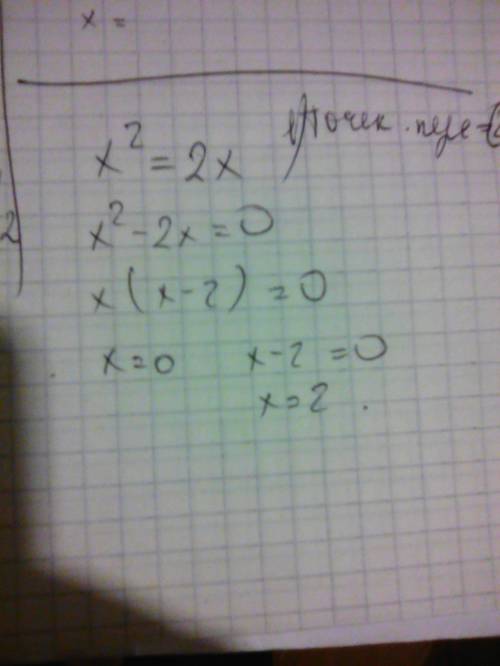 x =
x² = 2x
1) точек пере
2
x² - 2x = 0
x(x - 2) = 0
x = 0 x - 2 = 0
x = 2 .